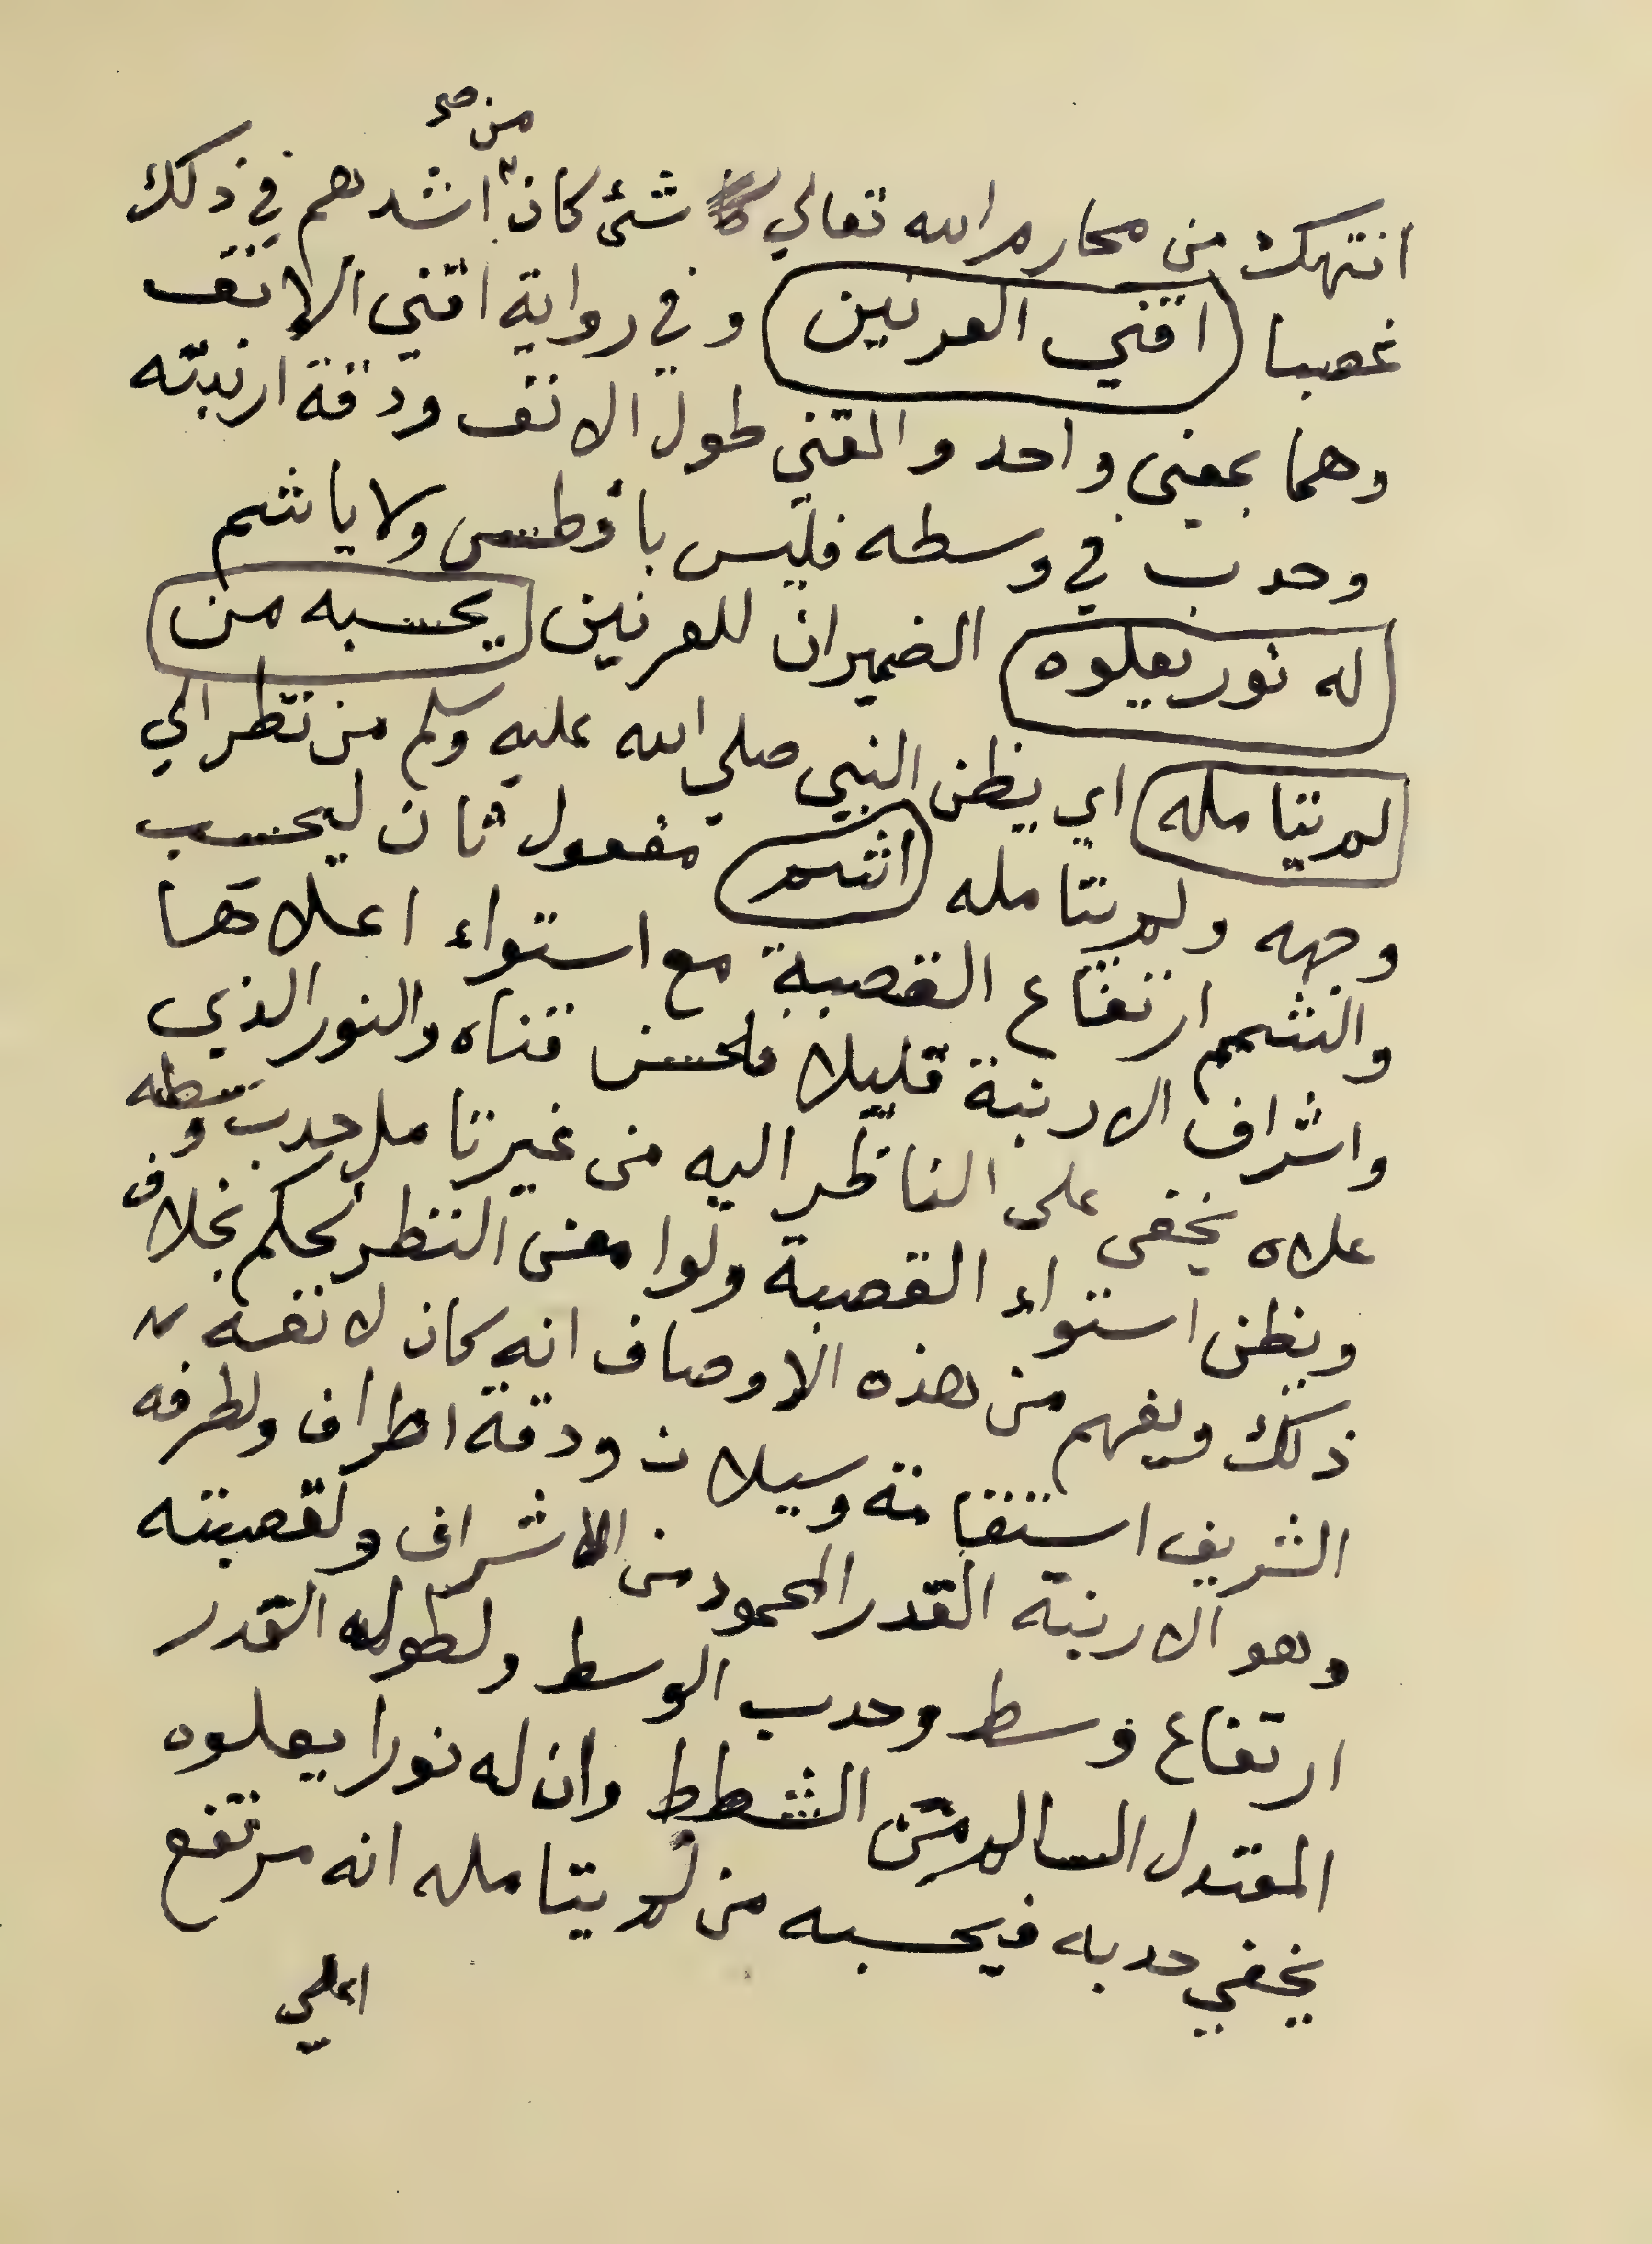 من صح
انتهك من محارم الله تعالي شئ كان اشدهم في ذلك
غصبا اقني العرنين وفي رواية اقني الانف
وهما بمعنى واحد والقني طول الانف ودقة ارنبته
وحدب في وسطه فليس بافطس ولا ياشم
له نور يعلوه الضميران للعرنين يحسبه من
لم يتامله اي يظن النبي صلي الله عليه وسلم من نظر الي
وجهه ولم يتامله اشم مفعول ثان ليحسب
والشمم ارتفاع القصبة مع استواء اعلاها
واشراف الارنبة قليلا فلحسن قناه والنور الذي
علاه يخفى على الناظر اليه من غير تامل حدب وسطه
ويظن استواء القصبة ولو امعن النظر لحكم بخلاف
ذلك ويفهم من هذه الاوصاف انه كان لانفه
الشريف استقامة وسيلان ودقة اطراف ولطرفه
وهو الارنبة القدر المحمود من الاشراف ولقصبته
ارتفاع وسط وحدب الوسط ولطوله القدر
المعتدل السالم من الشطط وان له نورا يعلوه
يخفي حدبه فيحسبه من لم يتامله انه مرتفع
اعلي